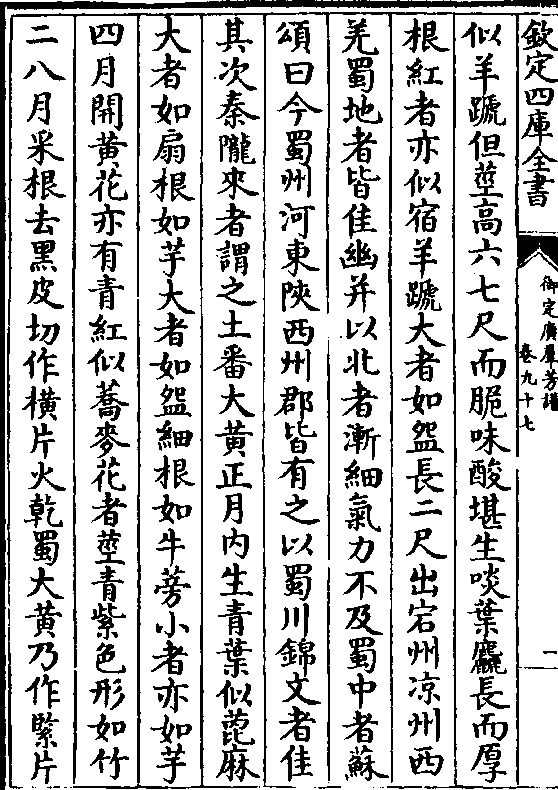 欽定四庫全書
御定廣羣芳譜
卷九十七
一
似羊蹏但莖高六七尺而脆味酸堪生啖葉麤長而厚
根紅者亦似宿羊蹏大者如盌長二尺出宕州凉州西
羌蜀地者皆佳幽并以北者漸細氣力不及蜀中者蘇
頌曰今蜀州河東陝西州郡皆有之以蜀川錦文者佳
其次秦隴來者謂之土番大黄正月内生青葉似蓖麻
大者如扇根如芋大者如盌細根如牛蒡小者亦如芋
四月開黄花亦有青紅似蕎麥花者莖青紫色形如竹
二八月采根去黑皮切作横片火乾蜀大黄乃作緊片